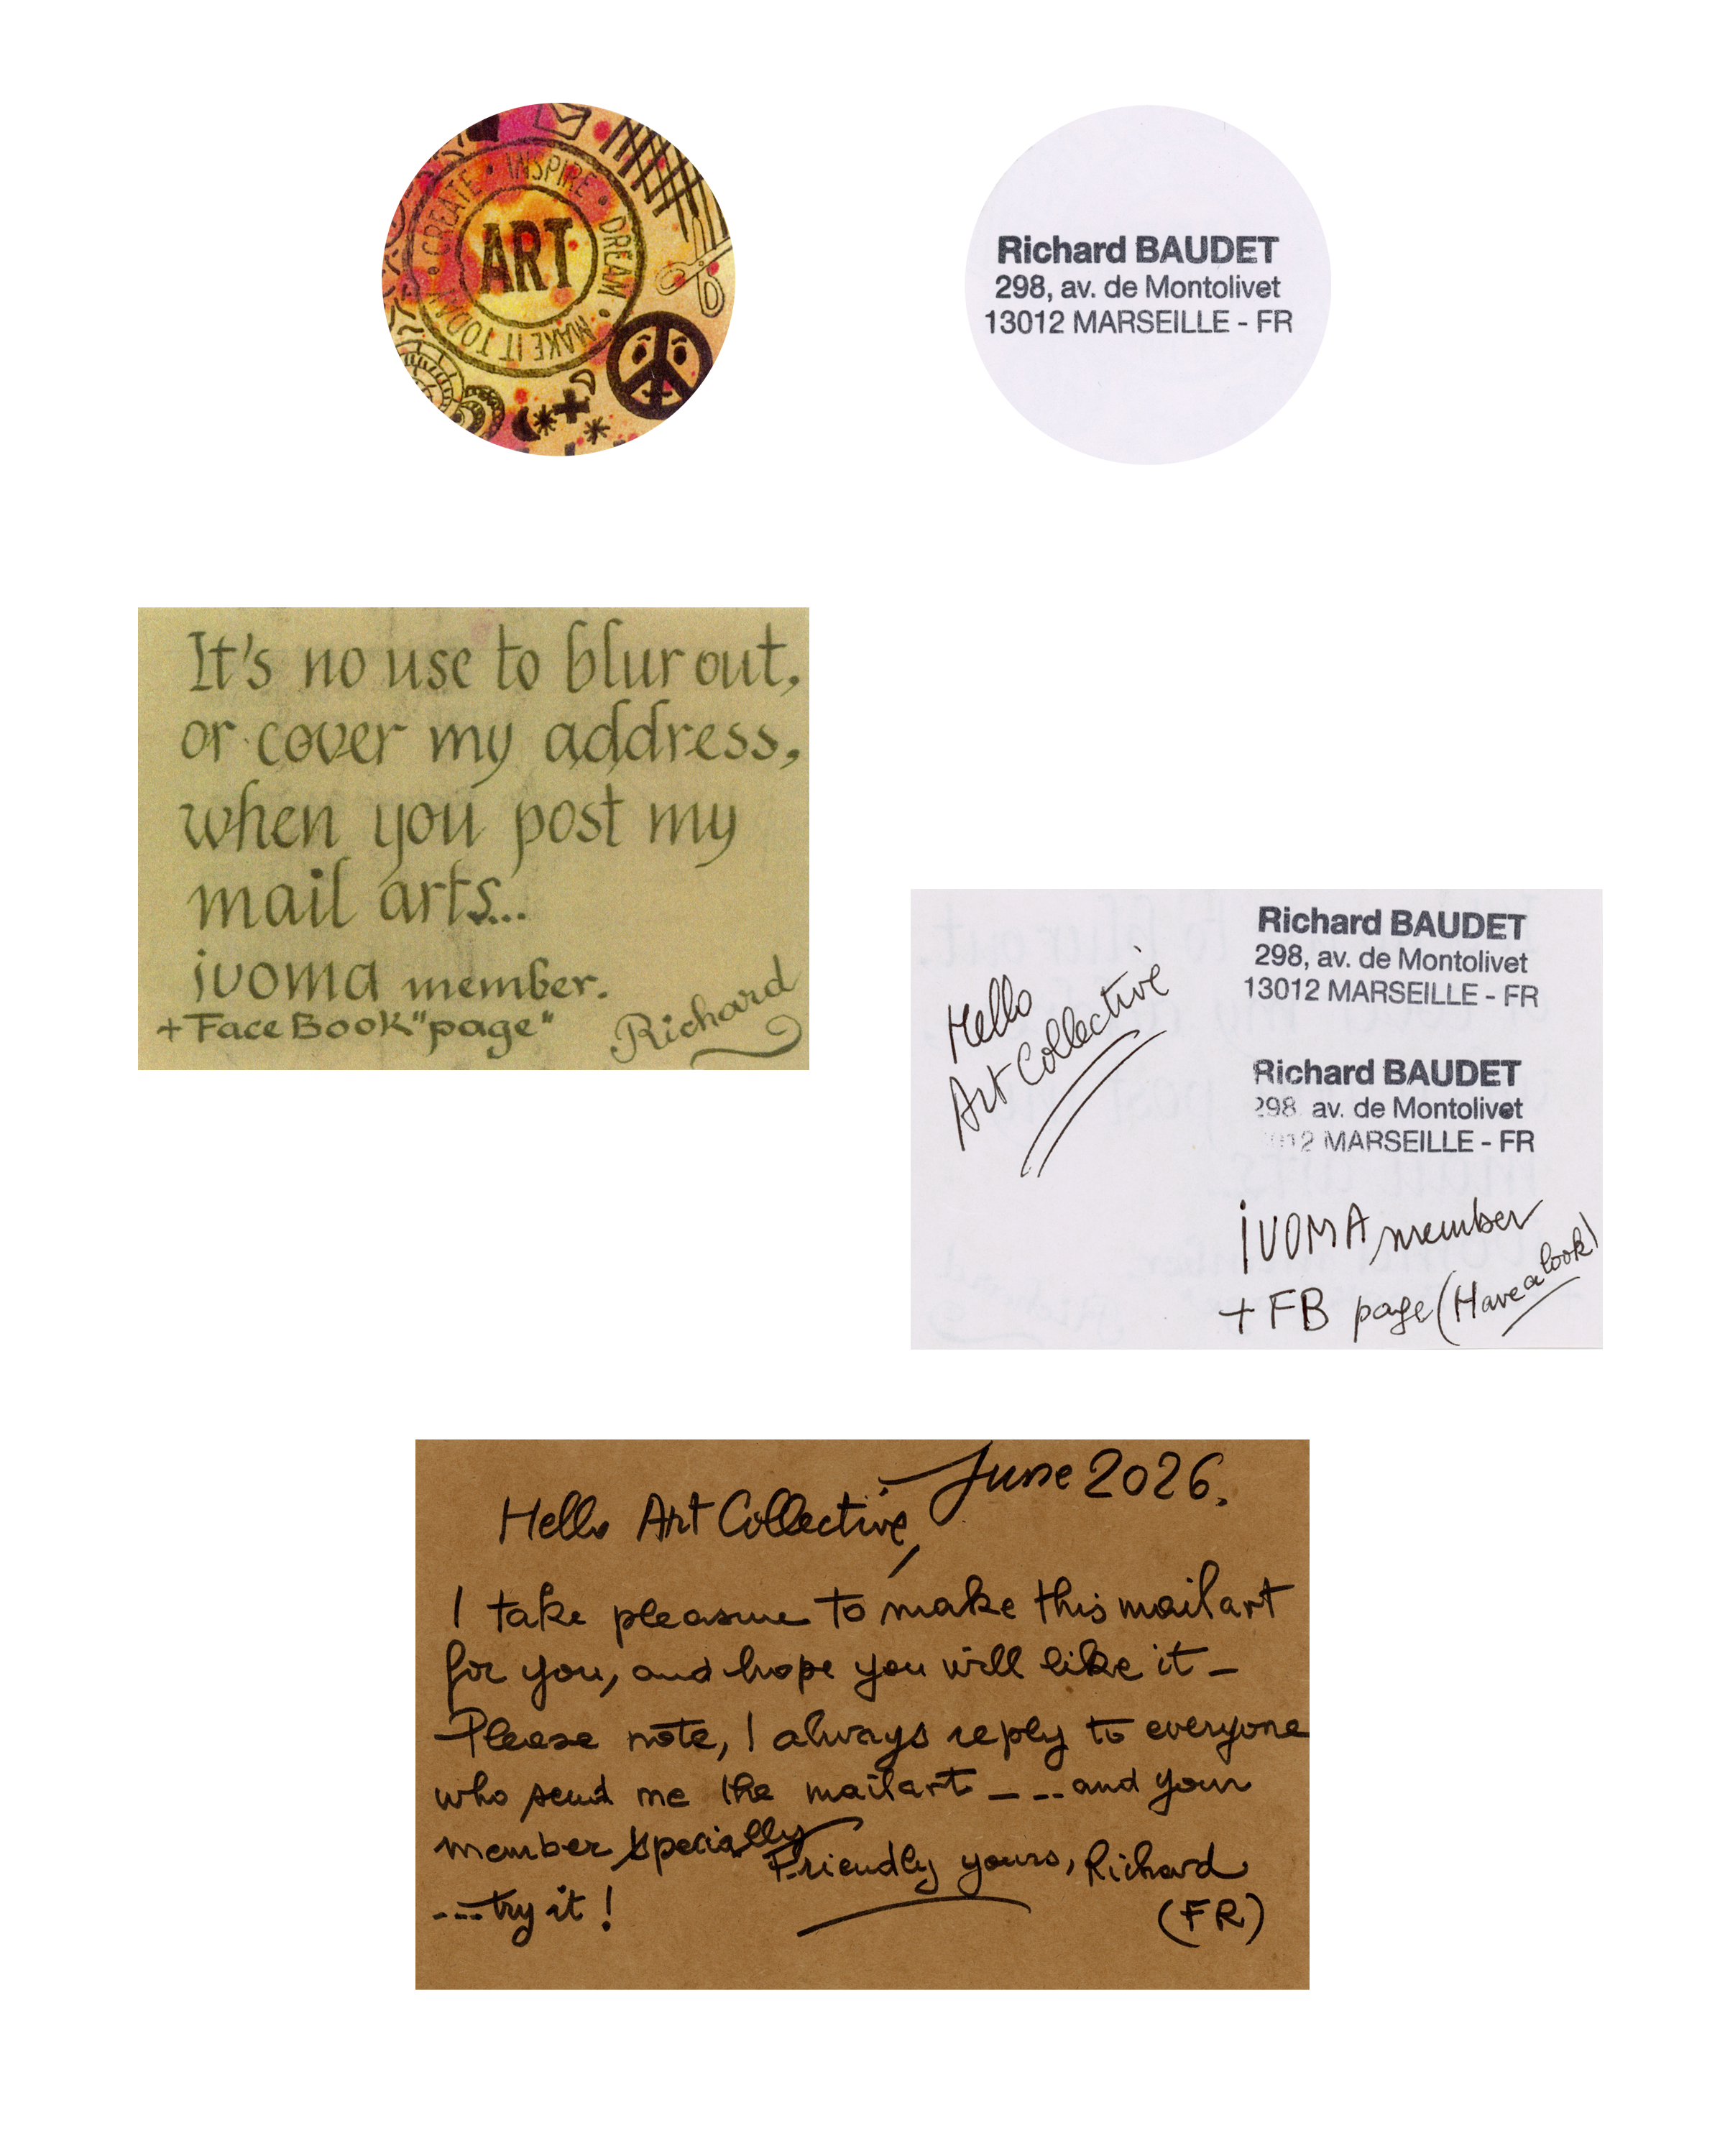 CREATE • INSPIRE • DREAM • MAKE IT TODAY •
ART
Richard BAUDET
298, av. de Montolivet
13012 MARSEILLE - FR
It's no use to blur out,
or cover my address,
when you post my
mail arts...
iuoma member.
+ FaceBook "page"
Richard
Hello
Art Collective
Richard BAUDET
298, av. de Montolivet
13012 MARSEILLE - FR
Richard BAUDET
298 av. de Montolivet
MARSEILLE - FR
iUOMA member
+ FB page (Have a look)
June 2026.
Hello Art Collective,
I take pleasure to make this mailart
for you, and hope you will like it -
Please note, I always reply to everyone
who send me the mailart - - - and your
member specially
Friendly yours, Richard
---try it !
(FR)